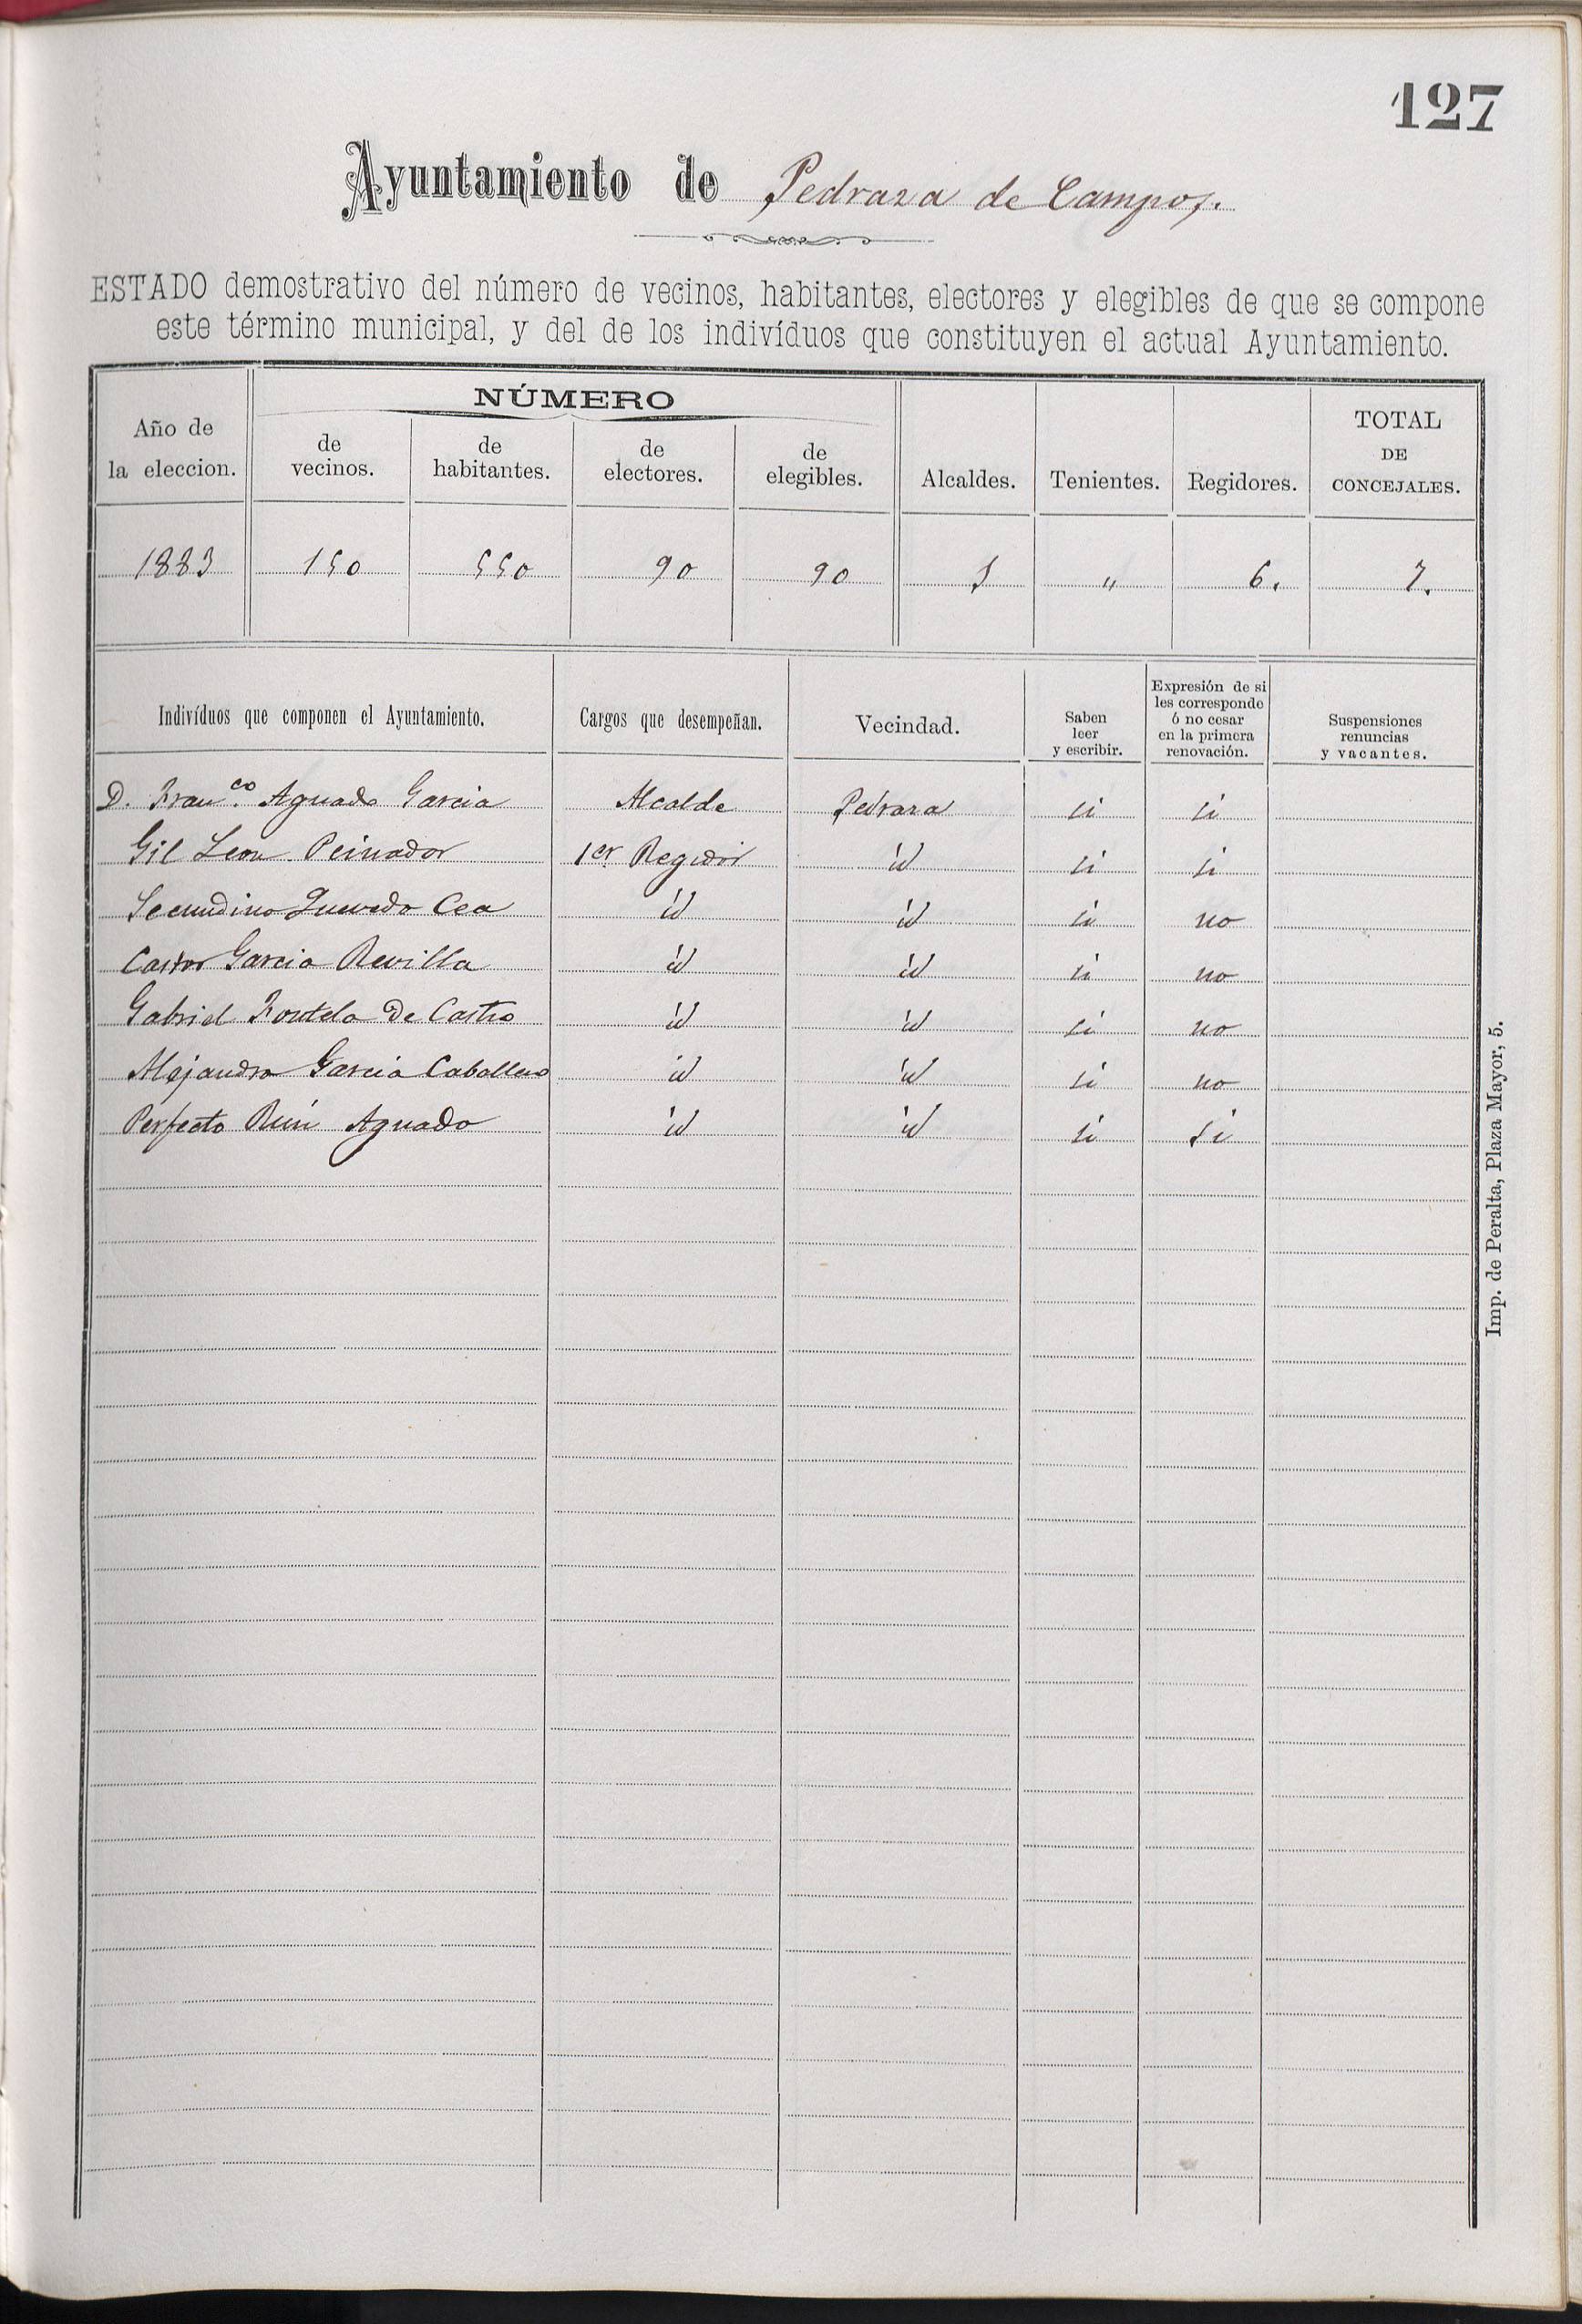 127
Ayuntamiento de Pedraza de Campos.
ESTADO demostrativo del número de vecinos, habitantes, electores y elegibles de que se compone
este término municipal, y del de los indivíduos que constituyen el actual Ayuntamiento.
Año de la eleccion. NÚMERO de vecinos. de habitantes. de electores. de elegibles. Alcaldes. Tenientes. Regidores. TOTAL DE CONCEJALES.
1883 150 550 90 90 1 " 6. 7.
Indivíduos que componen el Ayuntamiento. Cargos que desempeñan. Vecindad. Saben leer y escribir. Expresión de si les corresponde ó no cesar en la primera renovación. Suspensiones renuncias y vacantes.
D. Franco. Aguado Garcia Alcalde Pedraza si si
Gil Leon Peinador 1er Regidor id si si
Secundino Quevedo Cea id id si no
Castor Garcia Revilla id id si no
Gabriel de Castro id id si no
Alejandro Garcia Caballero id id si no
Perfecto Aguado id id si si
Imp. de Peralta, Plaza Mayor, 5.